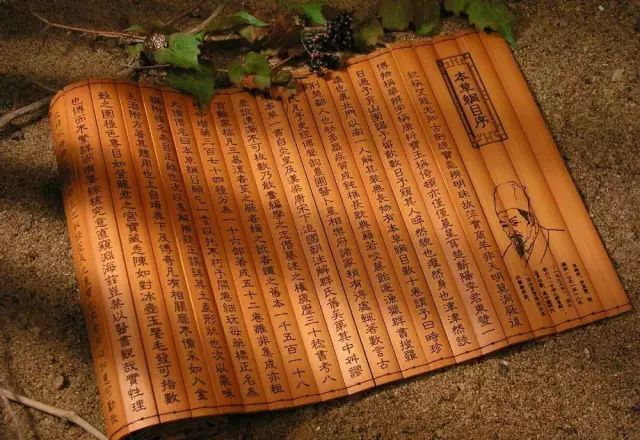 本草綱目序
紀稱望龍光知古劍覘寶氣辨明珠故萍實商羊非天明莫洞厥後
博物稱華辨字稱康析寶玉稱倚頓亦僅僅晨星耳楚蘄陽李君東璧一
日過予弇山園謁予留飲數日予窺其人睟然貌也癯然身也津津然談
議也真北斗以南一人解其裝無長物有本草綱目數十卷謂予曰時珍
荊楚鄙人也幼多羸疾質成鈍椎長耽典籍若啖蔗飴遂漁獵群書搜羅
百氏凡子史經傳聲韻農圃醫卜星相樂府諸家稍有得處輒著數言古
有本草一書自炎皇及漢梁唐宋下迨國朝註解群氏舊矣第其中舛謬
差訛遺漏不可枚數乃敢奮編摩之志僭纂述之權歲歷三十稔書考八
百餘家稿凡三易複者芟之闕者緝之訛者繩之舊本一千五百一十八
種今增藥三百七十四種分為一十六部著成五十二卷雖非集成亦粗
大備僭名曰本草綱目願乞一言以托不朽予開卷細玩每藥標正名為
綱附釋名為目正始也次以集解辨疑正誤詳其土產形狀也次以氣味
主治附方著其體用也上自墳典下及傳奇凡有相關靡不備采如入金
穀之園種色奪目如登龍君之宮寶藏悉陳如對冰壺玉鑒毛發可指數
也博而不繁詳而有要綜核究竟直窺淵海茲豈禁以醫書覯哉實性理